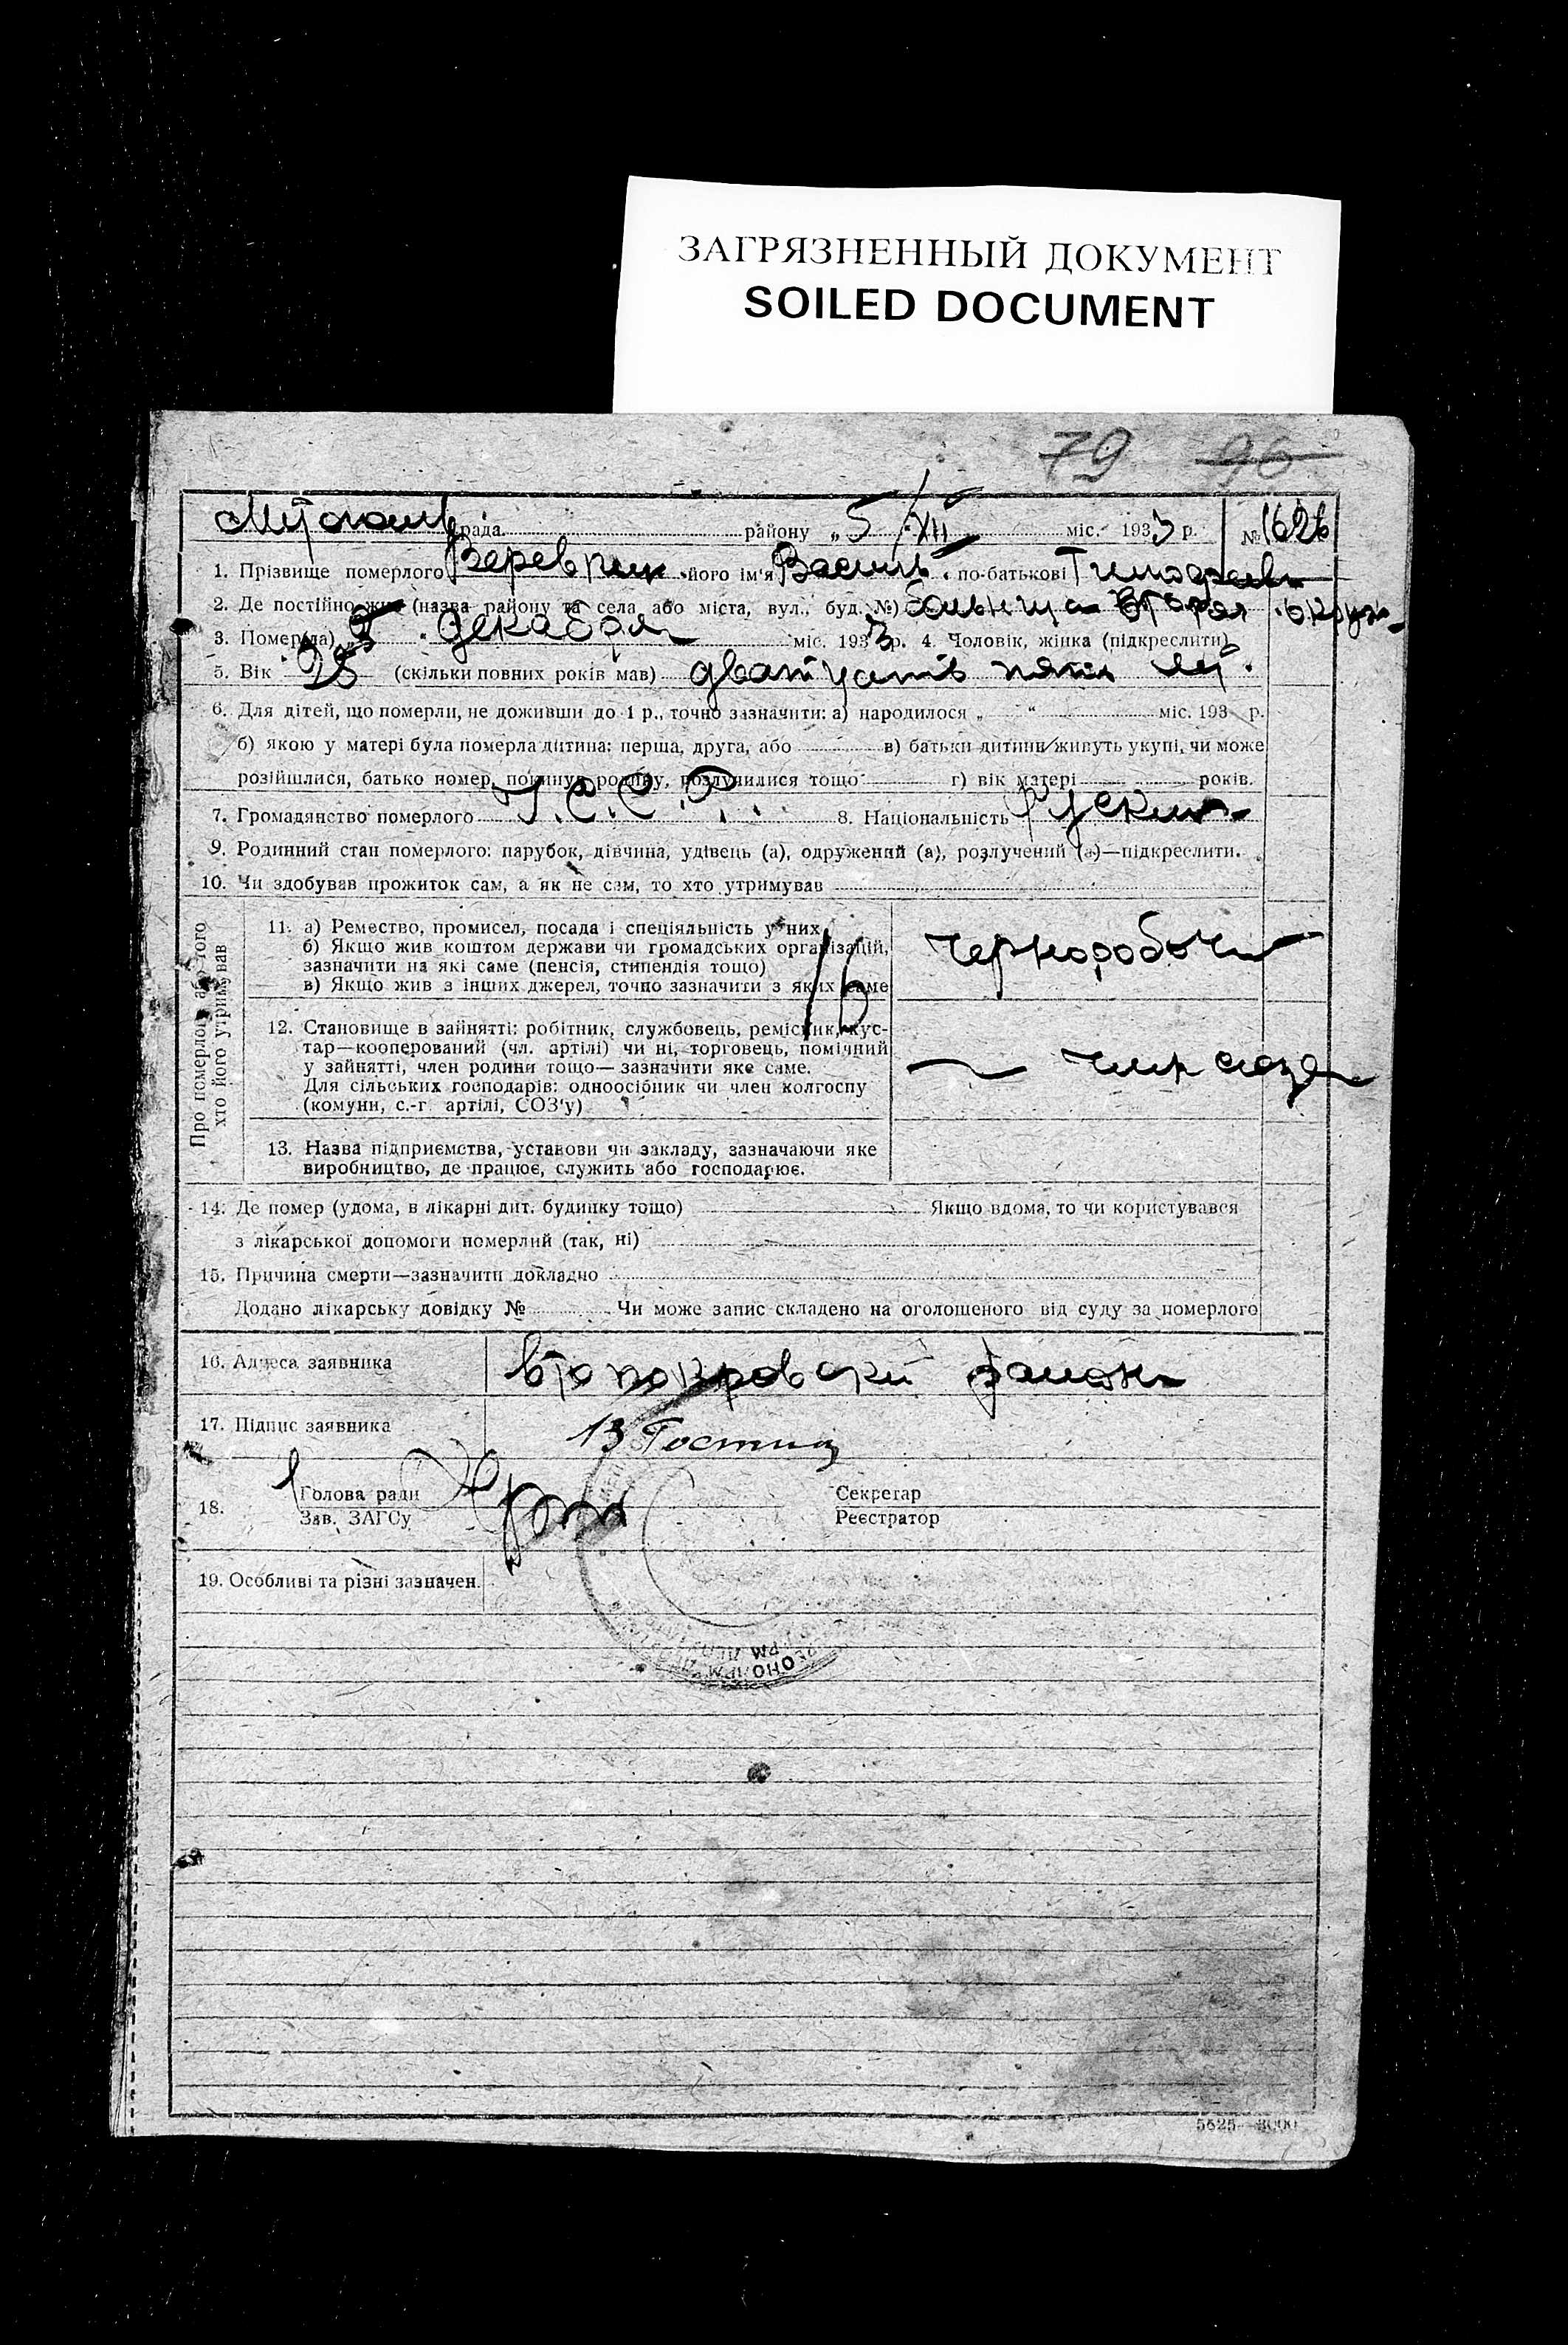 ЗАГРЯЗНЕННЫЙ ДОКУМЕНТ
SOILED DOCUMENT
79 96
рада района „5/XII міс. 1933 р. № 1626
1. Прізвище померлого Веревкин його ім'я Василь по-батькові Тимофеев
2. Де постійно жив (назва району та села або міста, вул., буд. №) больница вторая
3. Помер(ла) 5 декабря міс. 1933 р. 4. Чоловік, жінка (підкреслити)
5. Вік 25 (скільки повних років мав) двацять пять лет.
6. Для дітей, що померли, не доживши до 1 р., точно зазначити: а) народилося „ “ міс. 193 р.
б) якою у матері була померла дитина: перша, друга, або в) батьки дитини живуть укупі, чи може
розійшлися, батько помер, покинув родину, розлучилися тощо г) вік матері років.
7. Громадянство померлого У.С.С.Р. 8. Національність Руский
9. Родинний стан померлого: парубок, дівчина, удівець (а), одружений (а), розлучений (а)—підкреслити.
10. Чи здобував прожиток сам, а як не сам, то хто утримував
Про померлого або того
хто його утримував
11. а) Ремество, промисел, посада і спеціяльність у них
б) Якщо жив коштом держави чи громадських організацій,
зазначити на які саме (пенсія, стипендія тощо)
в) Якщо жив з інших джерел, точно зазначити з яких саме
16
черноробочи
12. Становище в зайнятті: робітник, службовець, ремісник, кус-
тар—кооперований (чл. артілі) чи ні, торговець, помічний
у зайнятті, член родини тощо—зазначити яке саме.
Для сільських господарів: одноосібник чи член колгоспу
(комуни, с.-г артілі, СОЗ'у)
член союза
13. Назва підприємства, установи чи закладу, зазначаючи яке
виробництво, де працює, служить або господарює.
14. Де помер (удома, в лікарні дит. будинку тощо) Якщо вдома, то чи користувався
з лікарської допомоги померлий (так, ні)
15. Причина смерти—зазначити докладно
Додано лікарську довідку № Чи може запис складено на оголошеного від суду за померлого
16. Адреса заявника район
17. Підпис заявника
18. Голова ради Секретар
Зав. ЗАГСу Реєстратор
19. Особливі та різні зазначен.
5625—3000